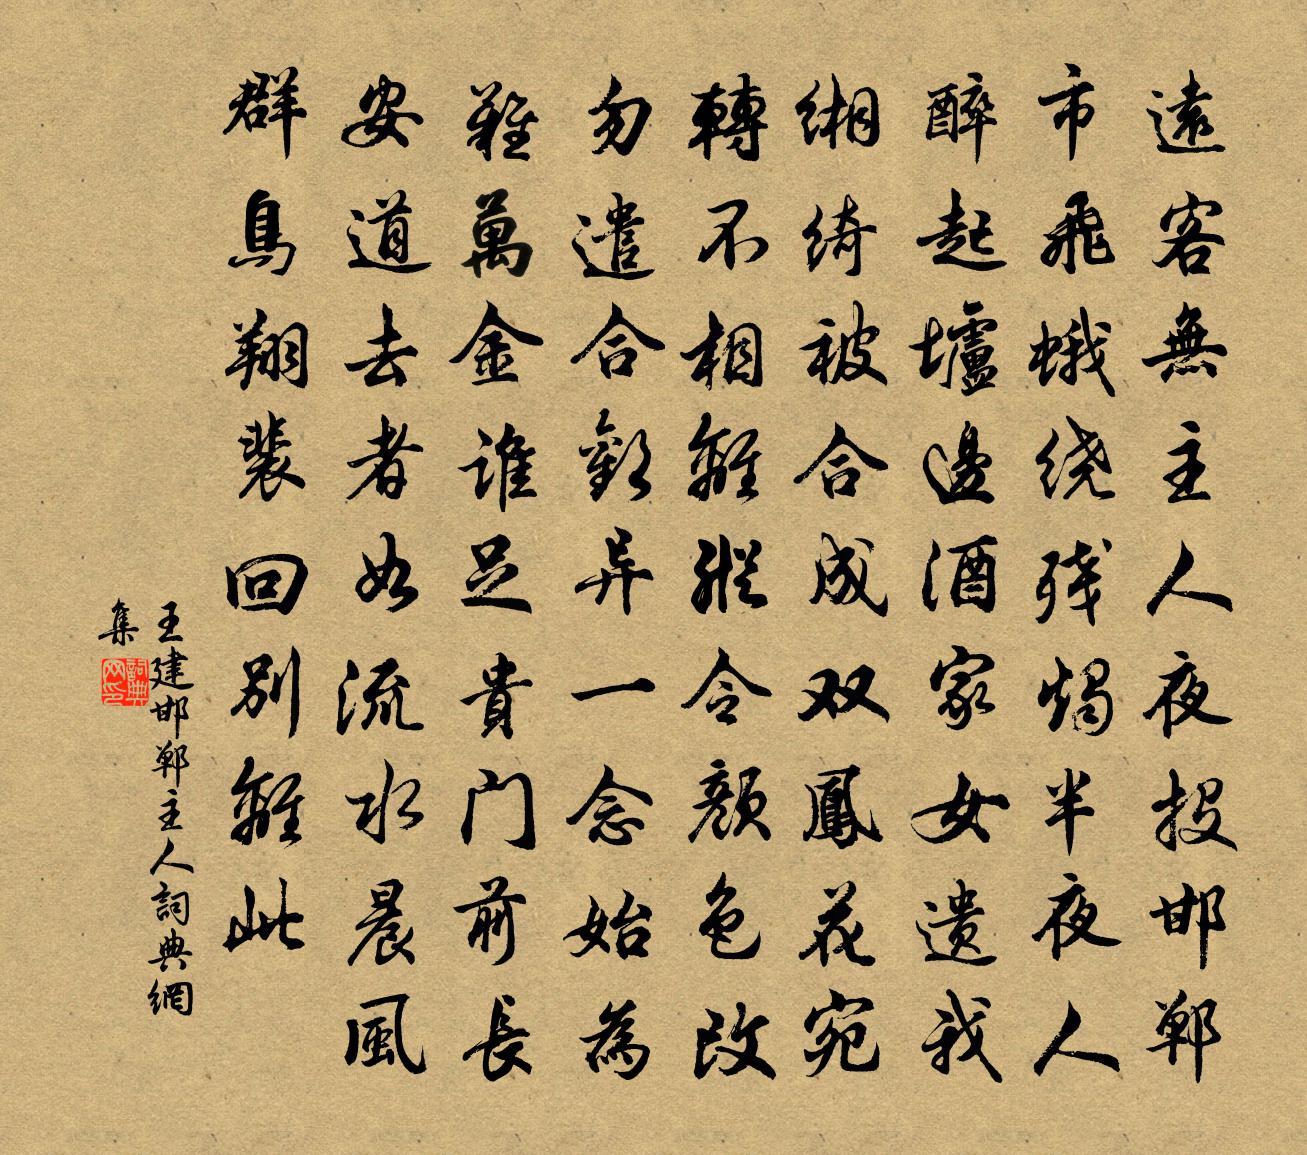 遠客無主人夜投邯鄲
市飛蛾绕残燭半夜人
醉起壚邊酒家女遗我
緗綺被合成双鳳花宛
轉不相離縱令顔色改
勿遣合歡异一念始為
難萬金誰足貴门前長
安道去者如流水晨風
群鳥翔裴回别離此
王建邯鄲主人詞典網
集